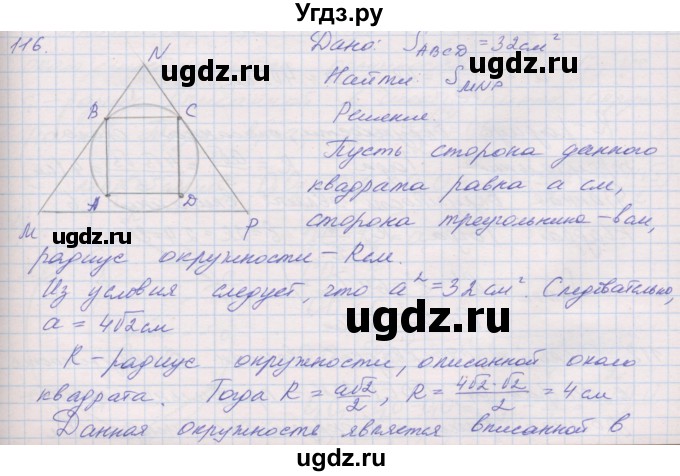 Угдз.ру
116.
Дано: S ABCD = 32 см²
N
ugdz.ru ugdz.ru
Найти: S MNP
B C
Решение.
Пусть сторона данного
квадрата равна a см,
A D
M P
ugdz.ru
сторона треугольника – b см,
радиус окружности – R см.
Из условия следует, что a² = 32 см². Следовательно,
a = 4√2 см
ugdz.ru
R – радиус окружности, описанной около
квадрата. Тогда R = a√2/2, R = 4√2·√2/2 = 4 см
Данная окружность является вписанной в
ugdz.ru ugdz.ru